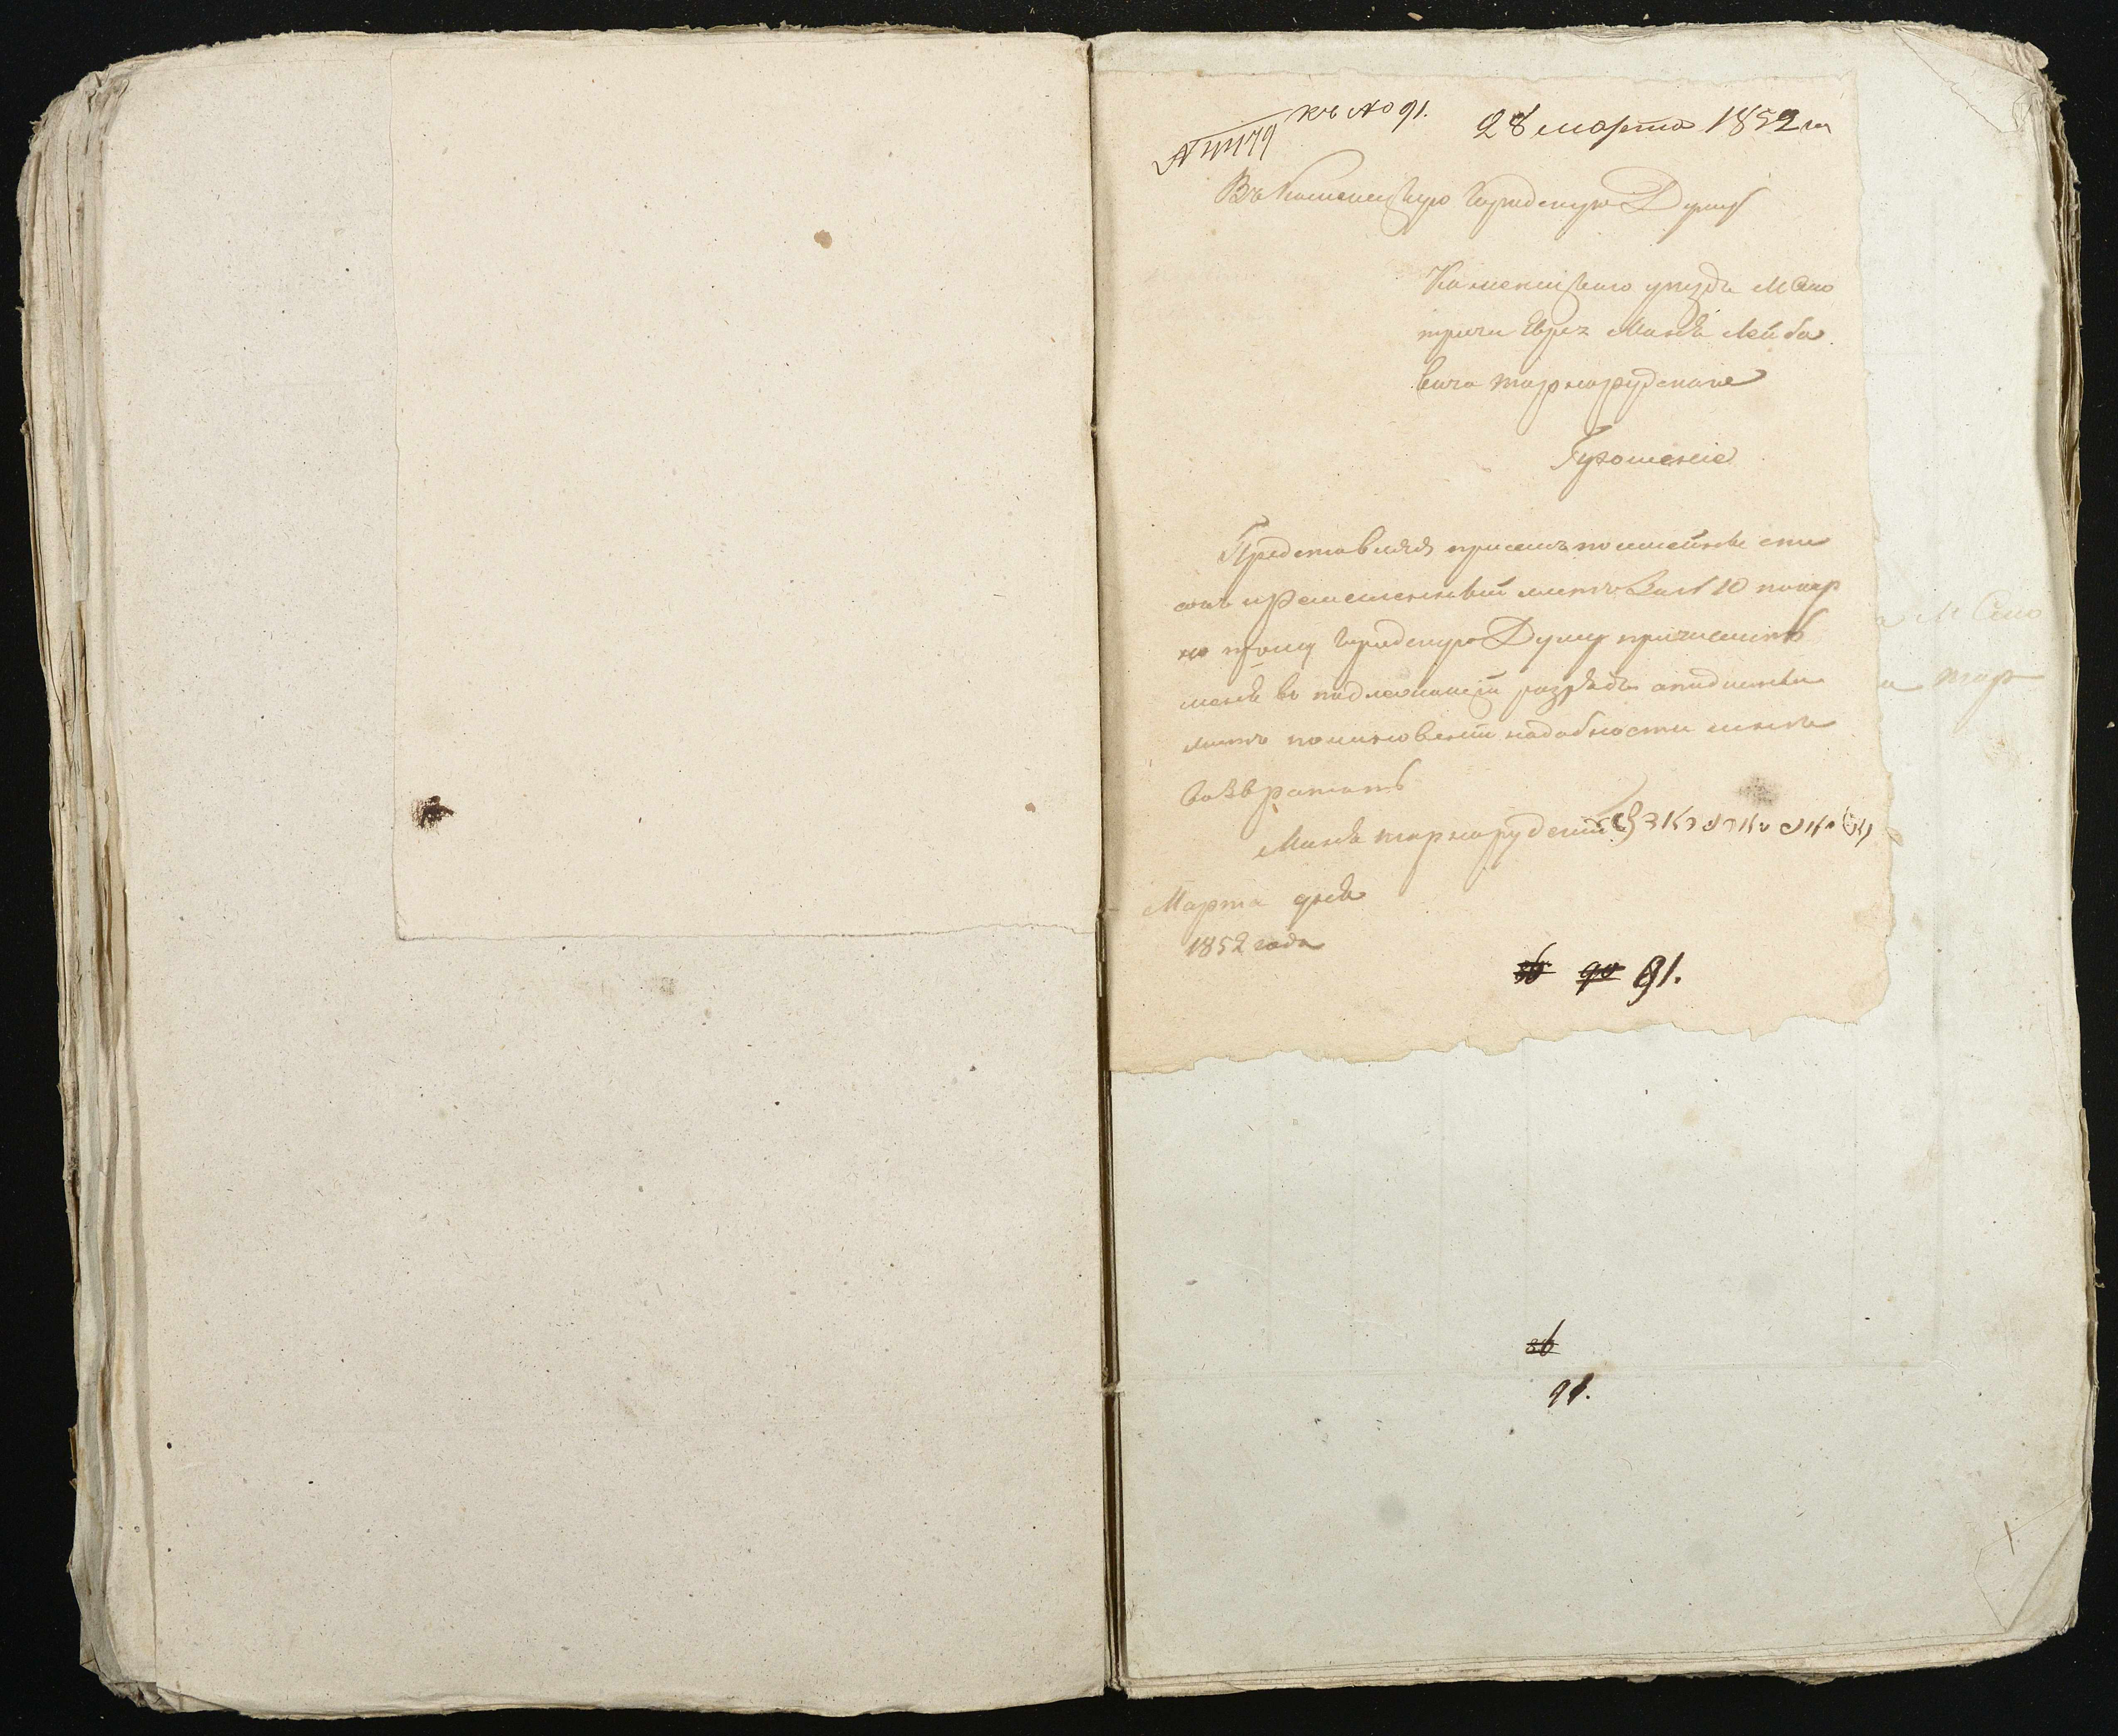 къ № 91.
28 марта 1852 г
Въ Каменецкую Городскую Думу
Каменецкаго уезда М Смо
трича Еврея Манѣ Лейбо
вича тарнорудскаго
Прошение
Представляя присемъ посемейны спи
сокъ и ременный листъ За № 10 покор
но прошу Городскую Думу причислить
меня въ надлежащій разрядъ
листъ поминовеніи надобности мнѣ
возвратить
Манѣ тарнорудский
Марта дня
1852 года
36 90 91.
М Смо
тар
36
91.